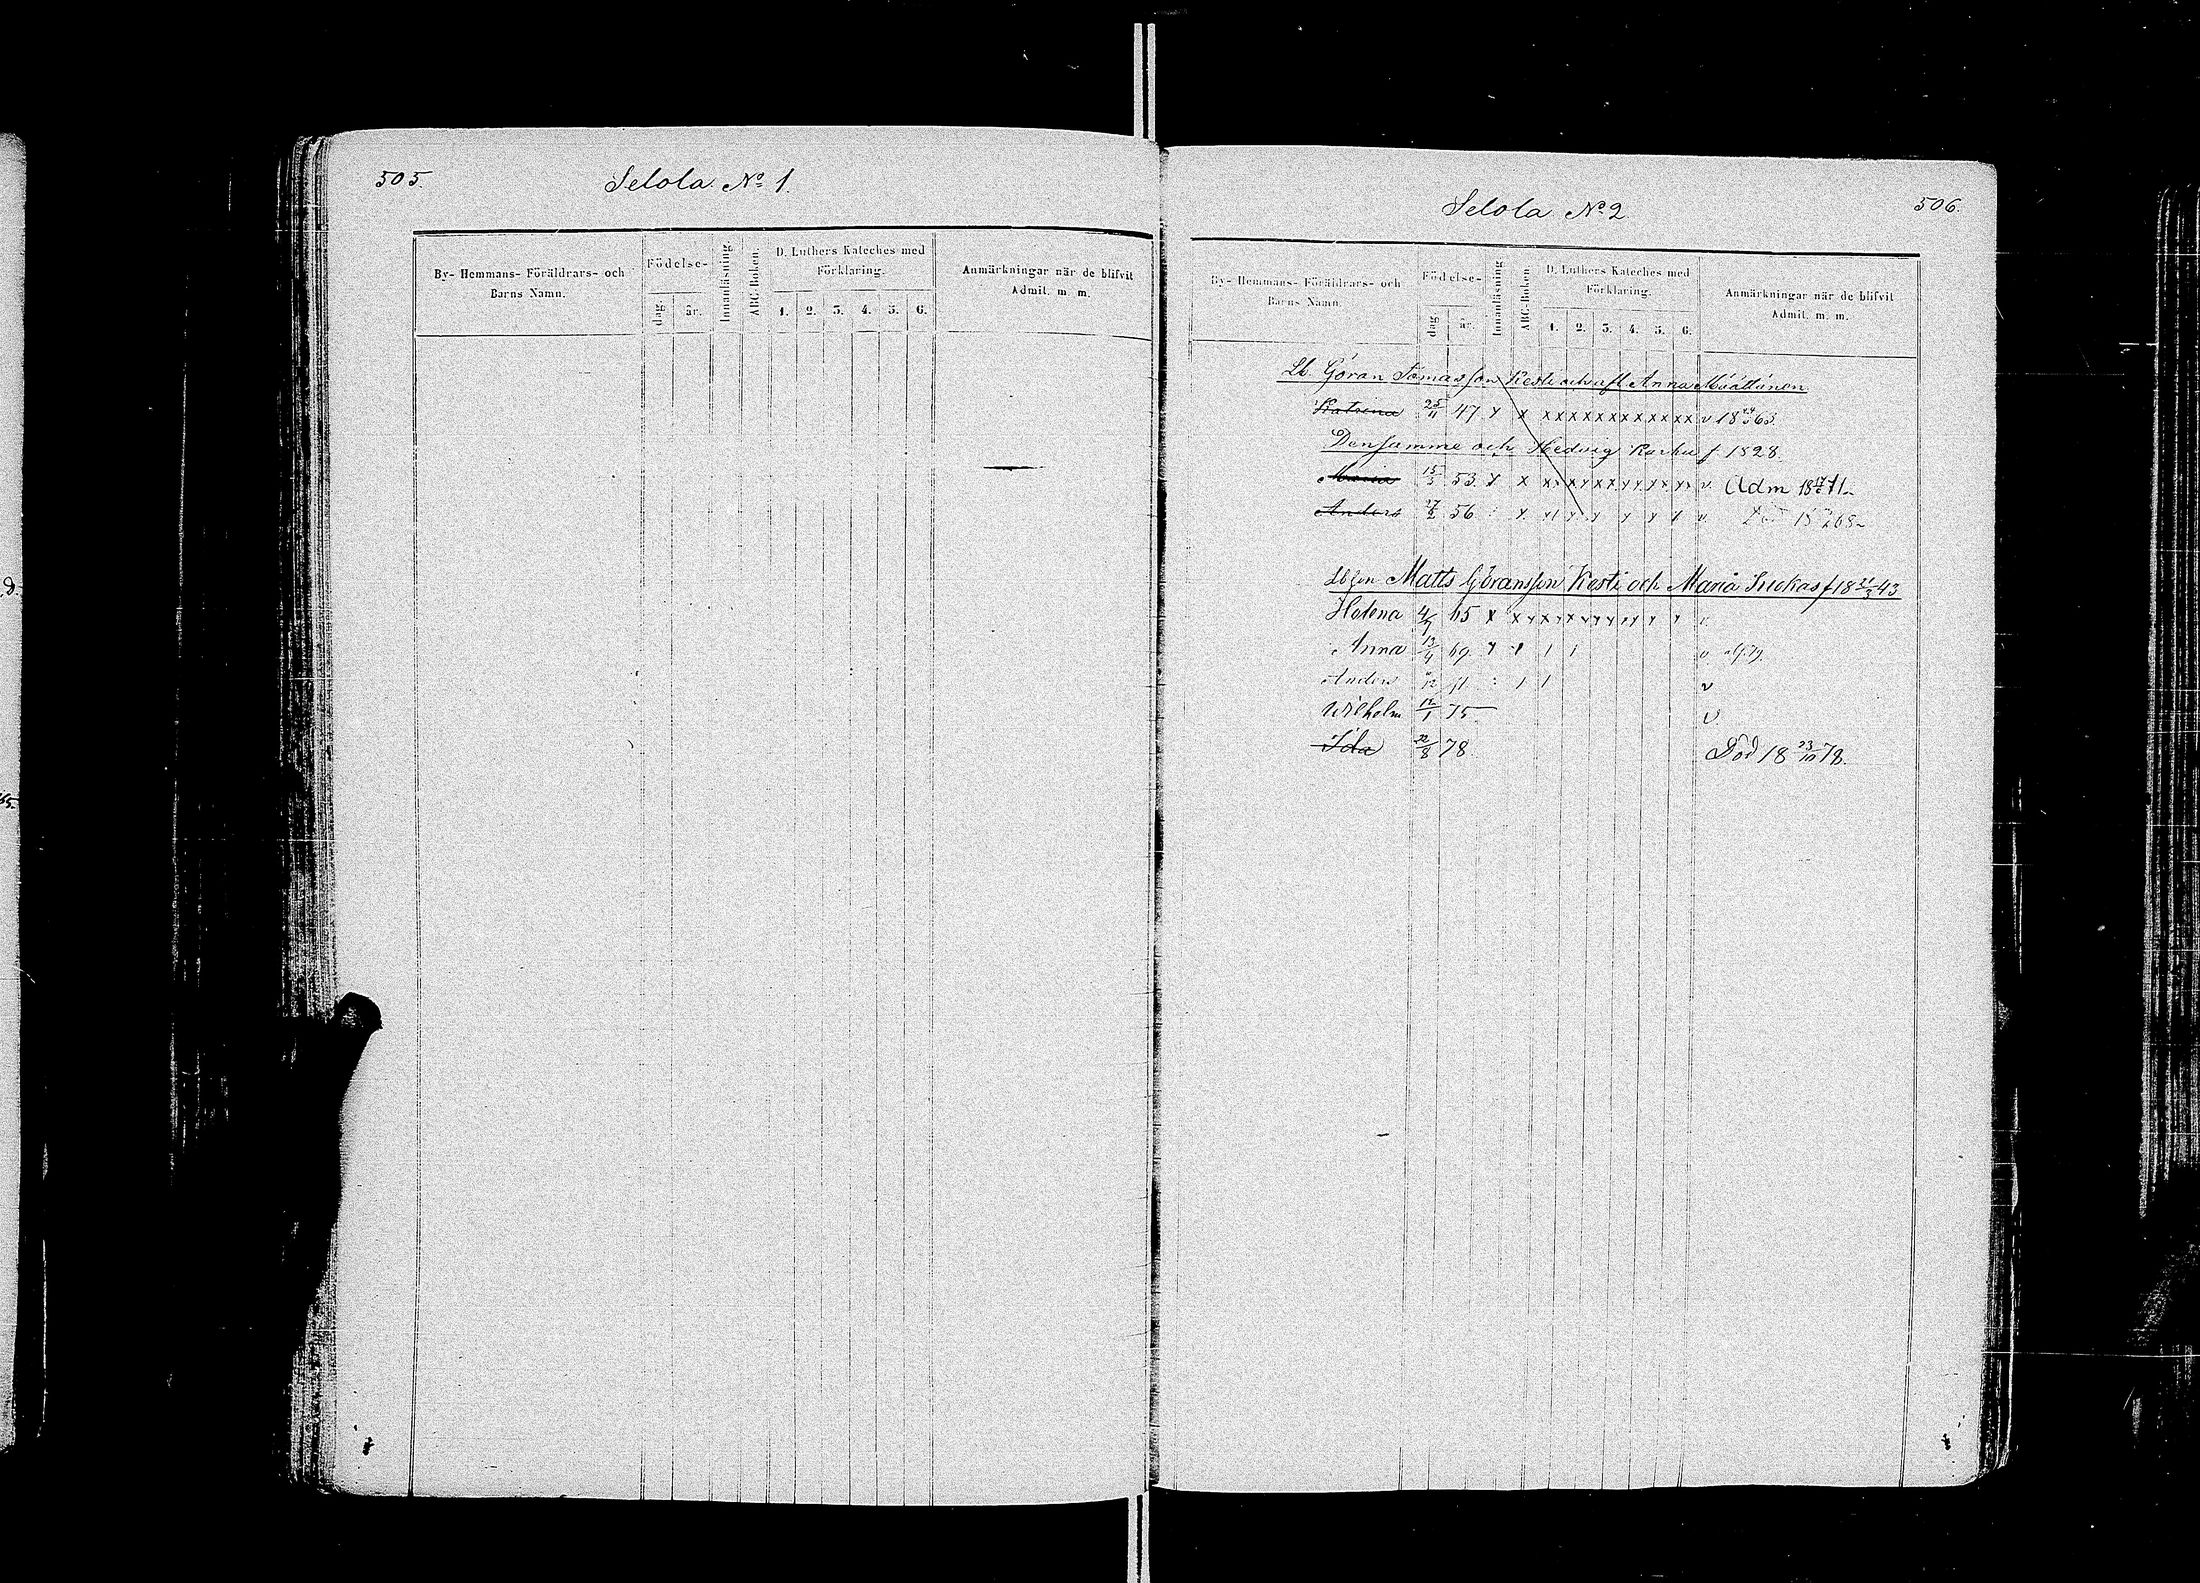 505.
Selola No 1.
By- Hemmans- Föräldrars- och Barns Namn.
Födelse-
dag
år.
Innanläsning
ABC-Boken.
D. Luthers Kateches med Förklaring.
1. 2. 3. 4. 5. 6.
Anmärkningar när de blifvit Admit. m. m.
Selola No 2
506.
By- Hemmans- Föräldrars- och Barns Namn.
Födelse-
dag
år.
Innanläsning
ABC-Boken
D. Luthers Kateches med Förklaring.
1. 2. 3. 4. 5. 6.
Anmärkningar när de blifvit Admit. m. m.
Lb. Göran Tomasson Kesti och afl Anna
Katrina 25/11 47 x x xxxxxxxxxxxx v 18 63.
Densamme och Hedvig Karhu f 1828.
Maria 15/5 53. x x xxxxxxxxxxxx v. Adm 18 71
Anders 27 56 : x x x x x x x v. 18 68
Lbson Matts Göransson Kesti och Maria f 18 43
Helena 4/7 65 x x x x x x x x x x x x v
Anna 13/4 69 x x 1 1 v
Anders 12 71 : 1 1 v
Wilhelm 12/1 75 v.
Ida 22/8 78. Död 18 23/10 78.